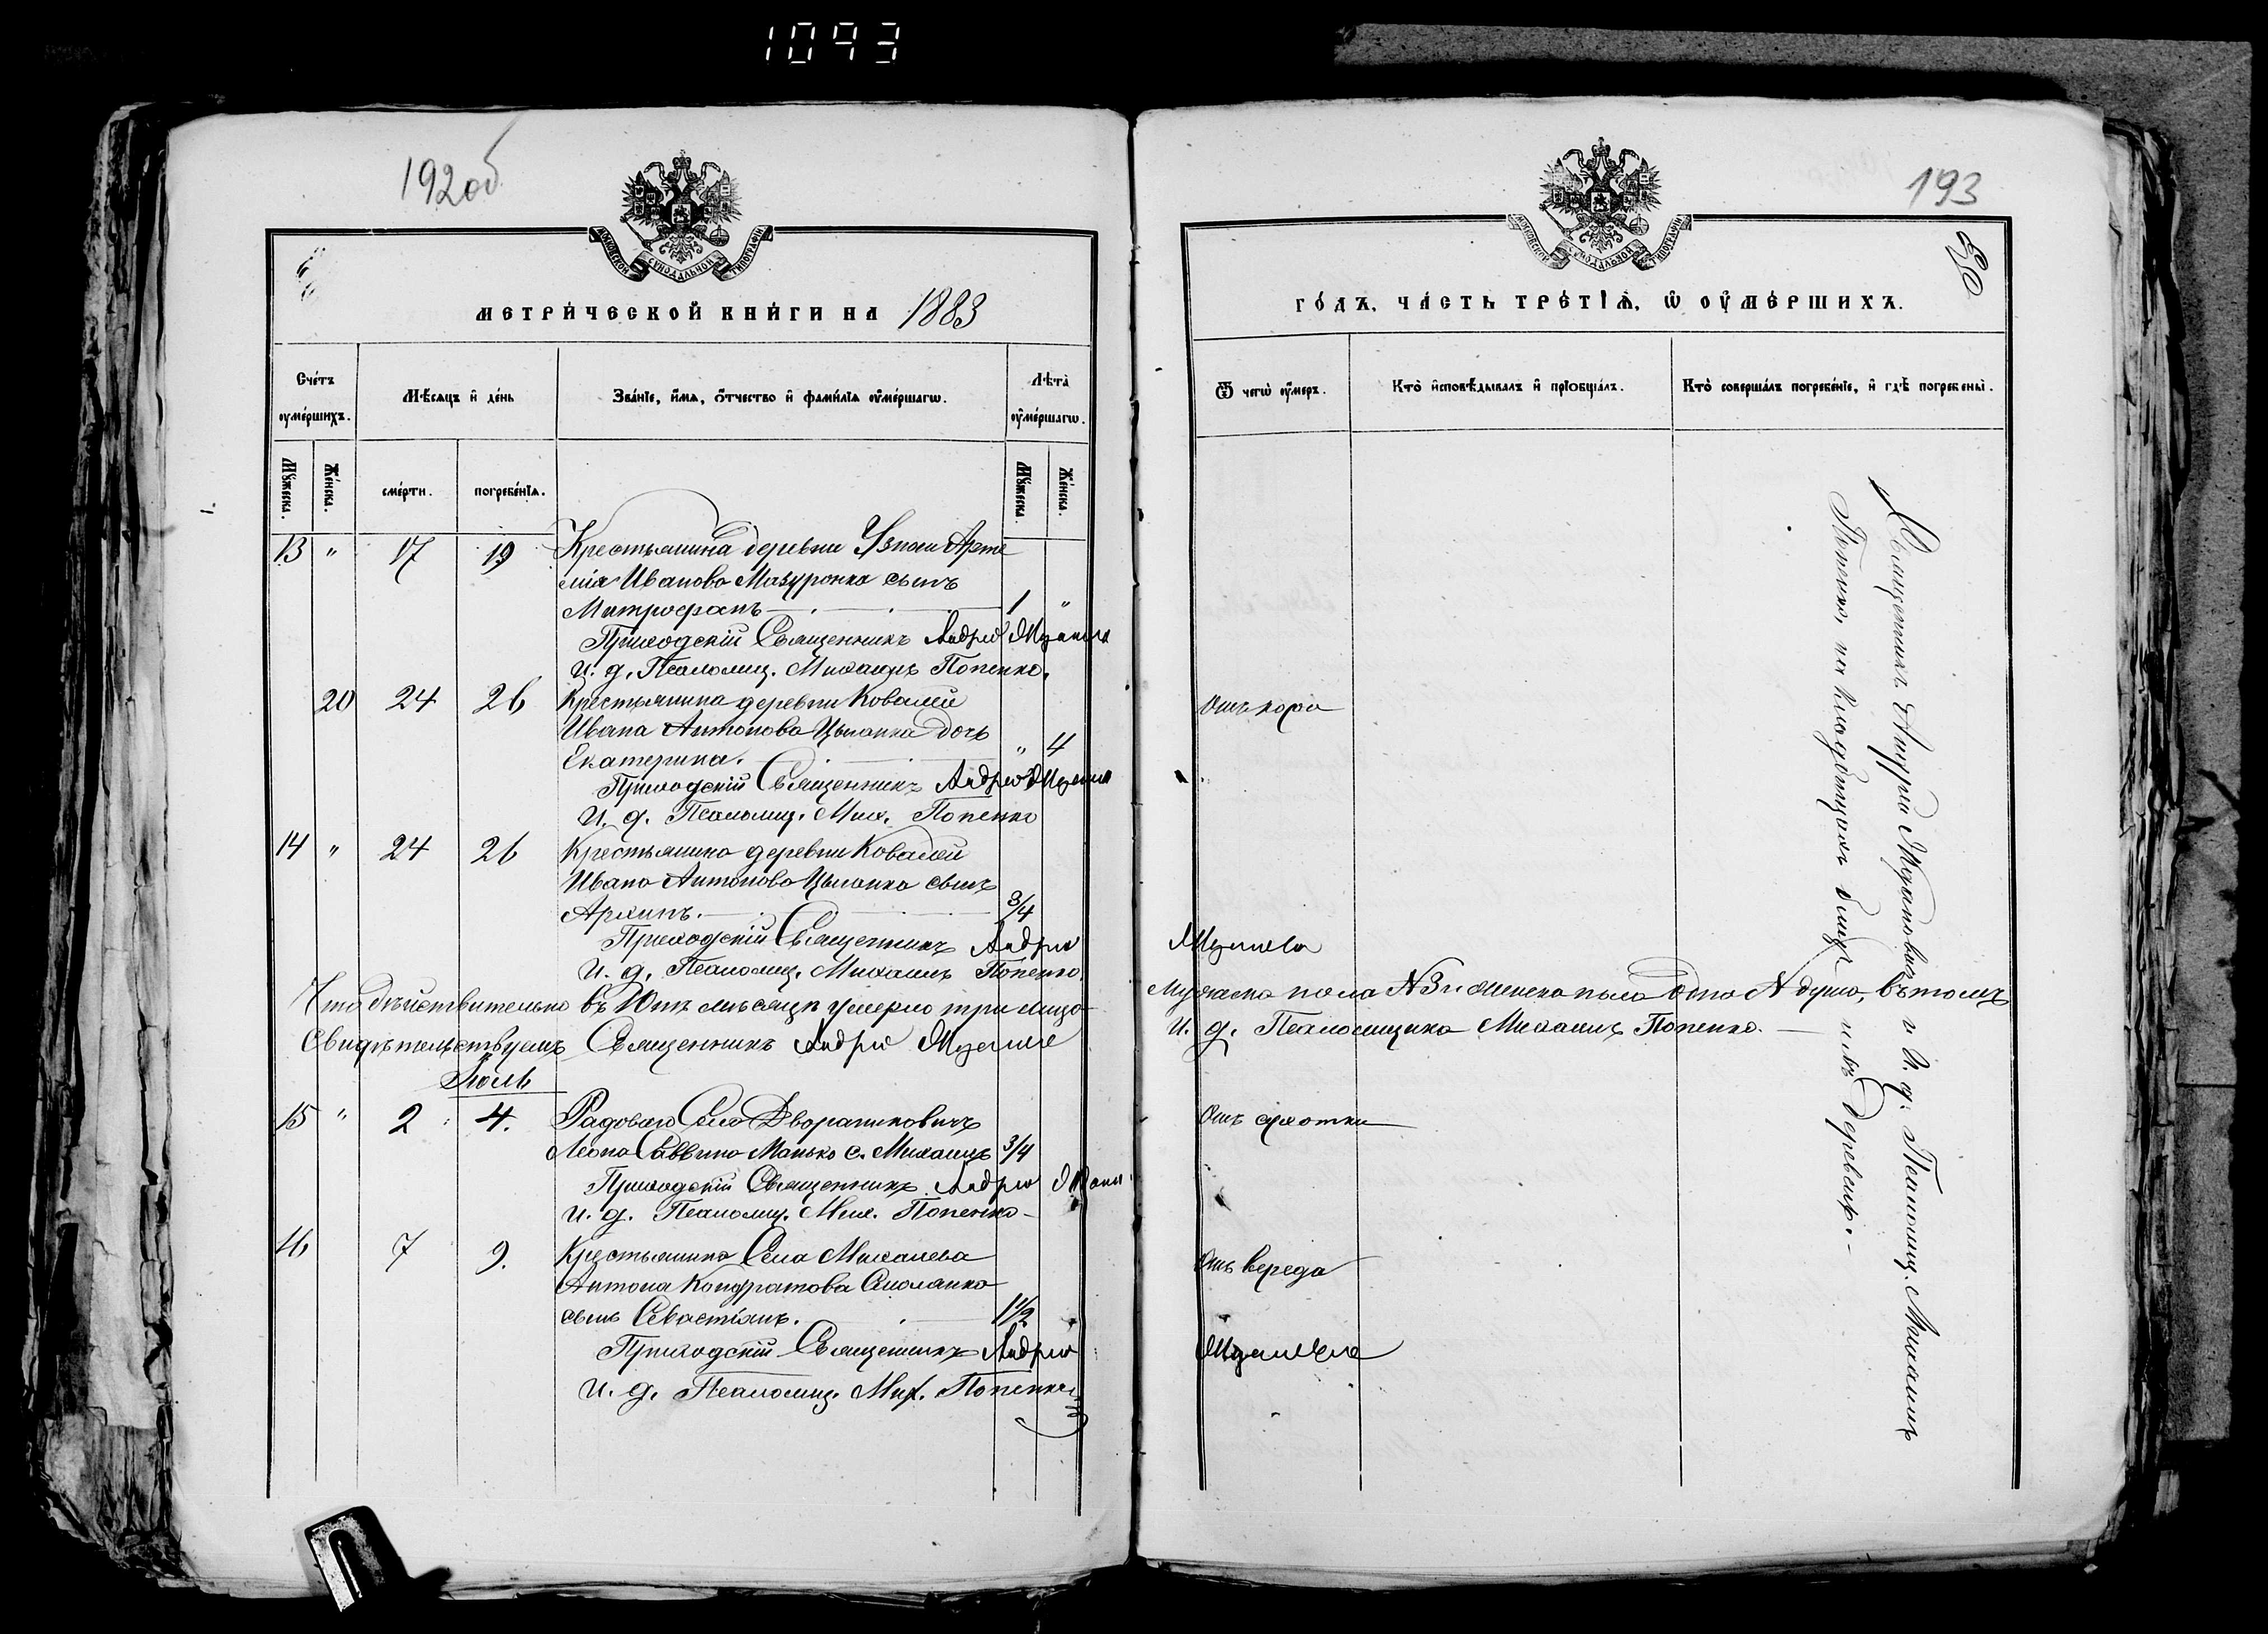 1093
192об
МОСКОВСКОЙ СИНОДАЛЬНОЙ ТИПОГРАФІИ
МЕТРИ́ЧЕСКОЙ КНИ́ГИ НА 1883
Счётъ оумершихъ.
Мѣсяцъ и день
Званіе, имя, отчество и фамилія оумершагw.
Лѣта оумершагw.
Мужеска. Женска. смерти. погребенія. Мужеска. Женска.
13 " 17 19 Крестьянина деревни Арте
мія Иванова Мазуронка сынъ
Митрофанъ 1 "
Приходскій Священникъ Андрей
И. д. Псаломщ. Михаилъ Попенко.
20 24 26 Крестьянина деревни Ковалей
Ивана Антонова Цыганка дочь
Екатерина. " 4
Приходскій Священникъ Андрей
И. д. Псаломщ. Мих. Попенко
14 " 24 26 Крестьянина деревни Ковалей
Ивана Антонова Цыганка сынъ
Архипъ. 3/4
Приходскій Священникъ Андрей
И. д. Псаломщ. Михаилъ Попенко.
Что дѣйствительно въ Юнѣ мѣсяцѣ умерло три лица
Свидѣтельствуемъ Священникъ Андрей
Іюль
15 " 2 4. Рядоваго Села
Леона Саввина Манько с. Михаилъ 3/4
Приходскій Священникъ Андрей
И. д. Псаломщ. Мих. Попенко
16 7 9. Крестьянина Села Михалева
Антона Кондратова
сынъ Севастіянъ. 1 1/2
Приходскій Священникъ Андрей
И. д. Псаломщ. Мих. Попенко
193
80
МОСКОВСКОЙ СИНОДАЛЬНОЙ ТИПОГРАФІИ
ГО́ДЪ, ЧА́СТЬ ТРЕ́ТІЯ, Ѡ ОУМЕ́РШИХЪ.
Ѿ чегw оумеръ.
Кто исповѣдывалъ и пріобщалъ.
Кто совершалъ погребеніе, и гдѣ погребены.
Отъ кора
мужеска пола № 3 и женска пола одна № душа, въ томъ
И. д. Псаломщика Михаилъ Попенко.
Отъ сухотки
Отъ вереда
Священникъ Андрей Жданович и И. д. Псаломщ. Михаилъ
Попенко, на кладбищахъ деревень.